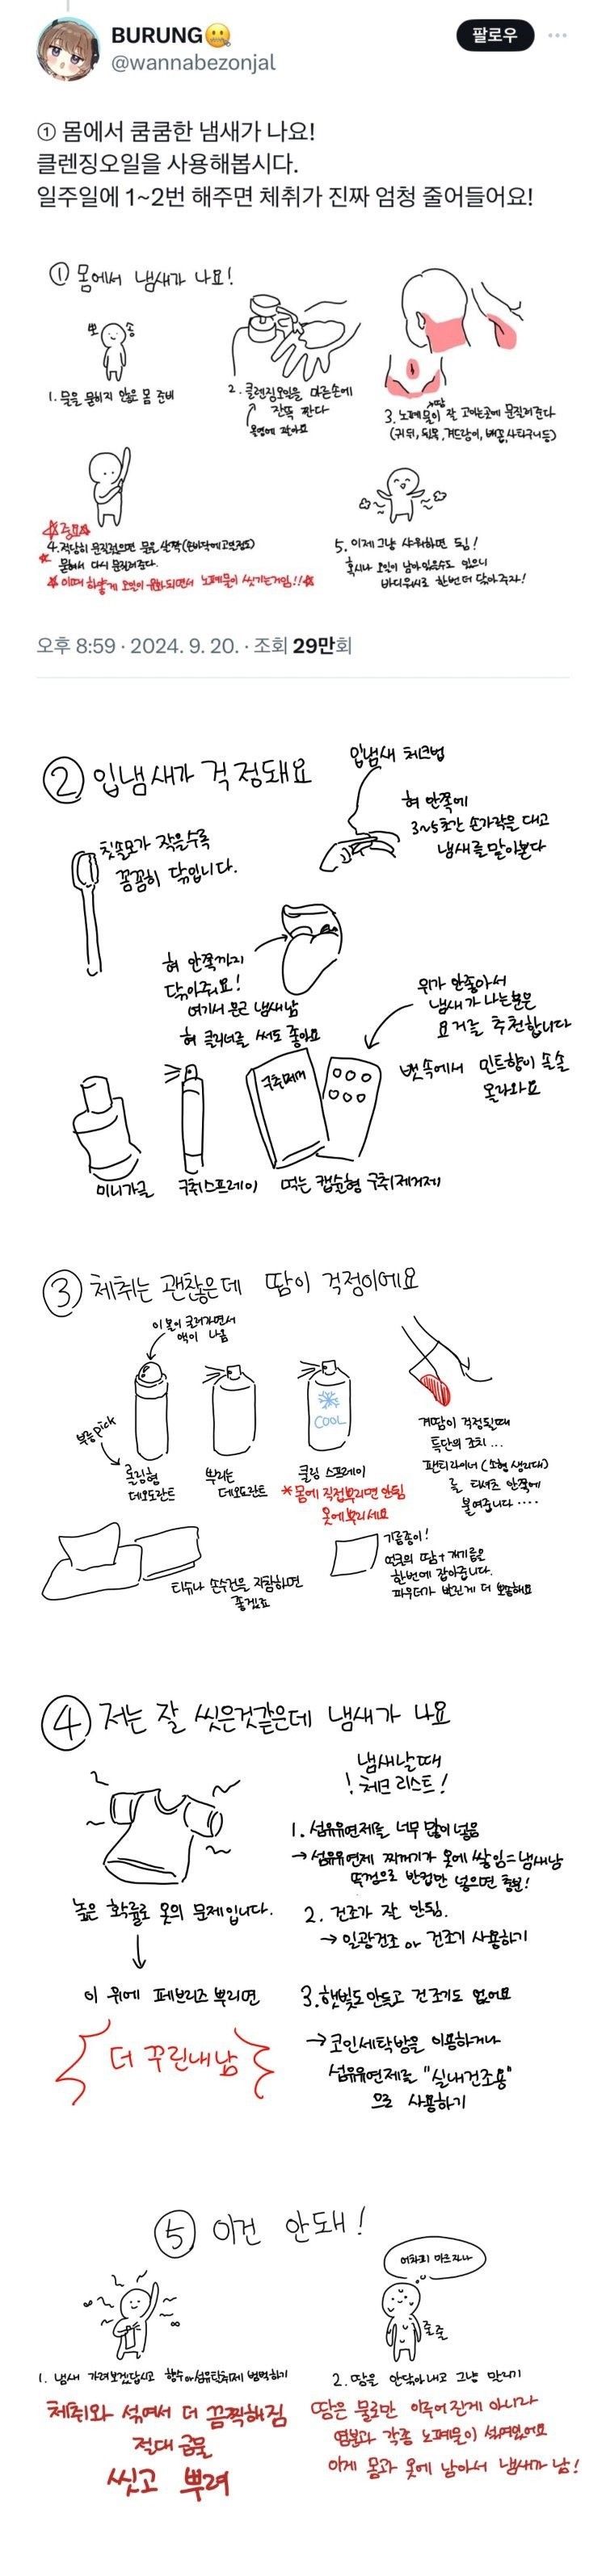 BURUNG
팔로우
@wannabezonjal
① 몸에서 쿰쿰한 냄새가 나요!
클렌징오일을 사용해봅시다.
일주일에 1~2번 해주면 체취가 진짜 엄청 줄어들어요!
① 몸에서 냄새가 나요!
뽀송
1. 물을 묻히지 않은 몸 준비
2. 클렌징오일을 마른손에
잔뜩 짠다
3. 노폐물이 잘 고이는곳에 문질러준다
땀
(귀 뒤, 뒷목, 겨드랑이, 배꼽, 사타구니 등)
☆중요☆
4. 적당히 문질렀으면 물을 살짝(손바닥에 고일정도)
묻혀서 다시 문질러준다.
☆ 이때 하얗게 오일이 유화되면서 노폐물이 씻기는거임!!☆
5. 이제 그냥 샤워하면 됨!
혹시나 오일이 남아있을수도 있으니
바디워시로 한번 더 닦아주자!
오후 8:59 · 2024. 9. 20. · 조회 29만회
② 입냄새가 걱정돼요
입냄새 체크법
혀 안쪽에
3~5초간 손가락을 대고
냄새를 맡아본다
칫솔모가 작을수록
꼼꼼히 닦입니다.
혀 안쪽까지
닦아주세요!
여기서 은근 냄새남
혀 클리너를 써도 좋아요
위가 안좋아서
냄새가 나는분은
요거를 추천합니다
뱃속에서 민트향이 솔솔
올라와요
미니가글
구취스프레이
먹는 캡슐형 구취제거제
③ 체취는 괜찮은데 땀이 걱정이에요
이 볼이 굴러가면서
액이 나옴
부릉pick
롤링형
데오도란트
뿌리는
데오도란트
COOL
쿨링 스프레이
*몸에 직접뿌리면 안됨
옷에뿌리세요
겨땀이 걱정될때
특단의 조치...
팬티라이너 (소형 생리대)
를 티셔츠 안쪽에
붙여줍니다....
티슈나 손수건을 지참하면
좋겠죠
기름종이!
얼굴의 땀+개기름을
한번에 잡아줍니다.
파우더가 발린게 더 뽀송해요
④ 저는 잘 씻은것같은데 냄새가 나요
냄새날때
! 체크 리스트!
높은 확률로 옷의 문제입니다.
이 위에 페브리즈 뿌리면
더 꾸린내남
1. 섬유유연제를 너무 많이 넣음
→ 섬유유연제 찌꺼기가 옷에 쌓임=냄새남
뚜껑으로 반컵만 넣으면 충분!
2. 건조가 잘 안됨.
→ 일광건조 or 건조기 사용하기
3. 햇빛도 안들고 건조기도 없어요
→ 코인세탁방을 이용하거나
섬유유연제를 "실내건조용"
으로 사용하기
⑤ 이건 안돼!
어차피 마르자나
줄줄
1. 냄새 가려보겠답시고 향수or섬유탈취제 범벅하기
체취와 섞여서 더 끔찍해짐
절대 금물
씻고 뿌려
2. 땀을 안닦아내고 그냥 말리기
땀은 물로만 이루어진게 아니라
염분과 각종 노폐물이 섞여있어요
이게 몸과 옷에 남아서 냄새가 남!